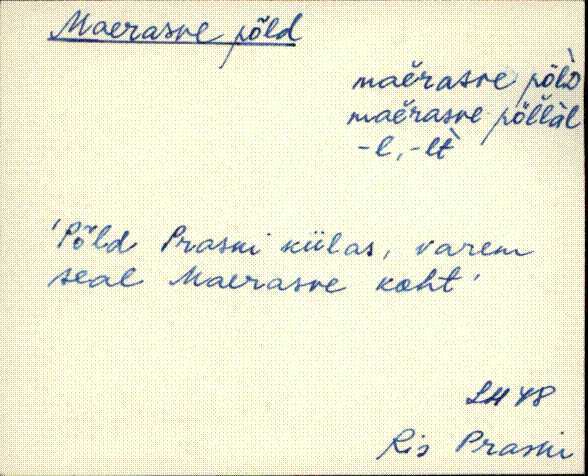 Maerasve põld
maĕrasve põl̀D
maĕrasve põllàl
-l, -lt̀
'Põld Praski külas, varem
seal Maerasve koht'
LH 48
Ris Praski